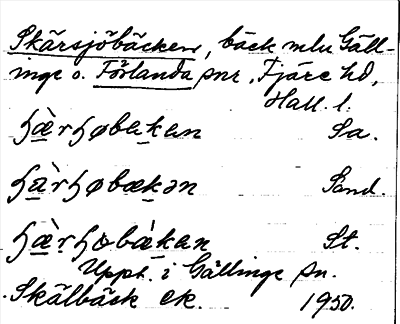 Skärsjöbäcken, bäck mlu Gäll-
inge o. Förlanda snr, Fjäre hd,
Hall. l.
ɧæ̀rɧøbakan Sa.
ɧæ̀rɧøbækən Sand.
ɧæ̀rɧøbàkan St.
Uppt. i Gällinge sn.
Skälbäck ek. 1950.